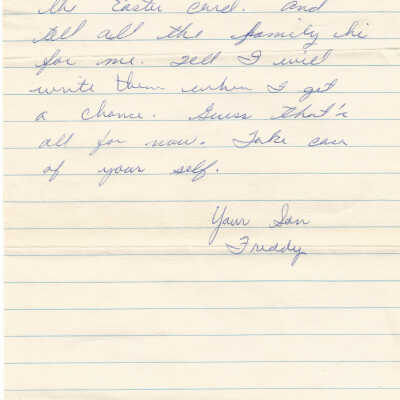 the Easter card. And
tell all the family hi
for me. Tell I will
write them when I get
a chance. Guess that's
all for now. Take care
of your self.
Your Son
Freddy